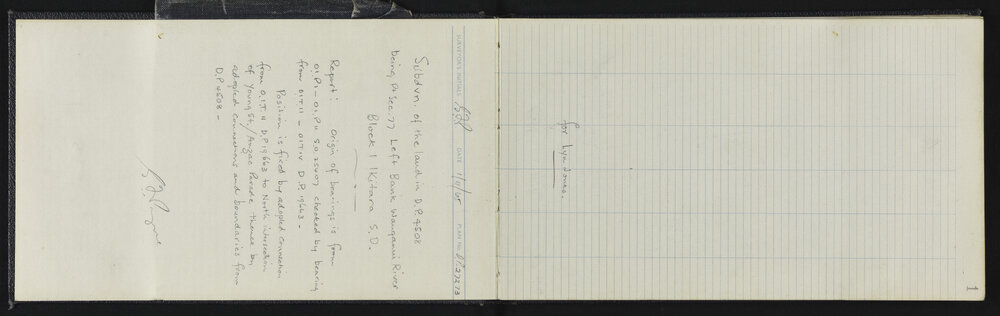 SURVEYOR'S INITIALS DATE 1/11/65 PLAN No. D.P. 27273
Subdvn. of the land in D.P. 4508
being Pt Sec. 77 Left Bank Wanganui River
Block I Ikitara S.D.
Report: Origin of bearings is from
O.I.P.I - O.I.P.II S.O. 25407 checked by bearing
from O.I.T.II - O.I.T.IV D.P. 19663 -
Position is fixed by adopted connection
from O.I.T.II D.P. 19663 to North intersection
of Young St./Anzac Parade thence by
adopted connections and boundaries from
D.P. 4508 -
for Lyn Jones.
1